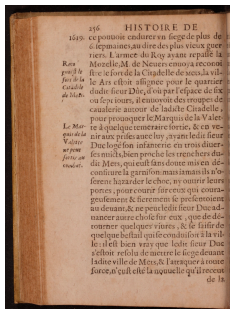 256 HISTOIRE DE
1619. ce pouvoit endurer en siege de plus de
6 sepmaines, au dire des plus vieux guer
riers. L'armée du Roy ayant repassé la
Mozelle, M. de Nevers envoya reconoi
stre le fort de la Citadelle de mets, la vil-
le Ars estoit assignée pour le quartier
dudit sieur Duc, d'où par l'espace de six
ou sept iours, il envoyoit des troupes de
cavalerie autour de ladicte Citadelle,
pour provoquer le Marquis de la Valet-
te à quelque temeraire sortie, & en ve-
nir aux prises avec luy, ayant ledit sieur
Duc logé son infanterie en trois divers
dit Mets, qui estoit
la garnison: mais ils n'o-
serent hazarder le choc, ny ouvrir leurs
portes, pour courir sur ceux qui coura-
geusement & fierement se presentoient
au devant, & ne peu ledit sieur Duc ad-
vancer autre chose sur eux, que de dé-
tourner quelques
quelque bestail qui se conduisoit à la vil-
le: il est bien vray que ledit sieur Duc
s'estoit resolu de mettre le siege devant
ladite ville de Mets, & l'attaquer à toute
force, n'eust esté la nouvelle qu'il receut
de la
Reco
fort de la
Citadelle
de Mets.
Le Mar-
quis de la
Valette
ne peut
sortir au
combat.